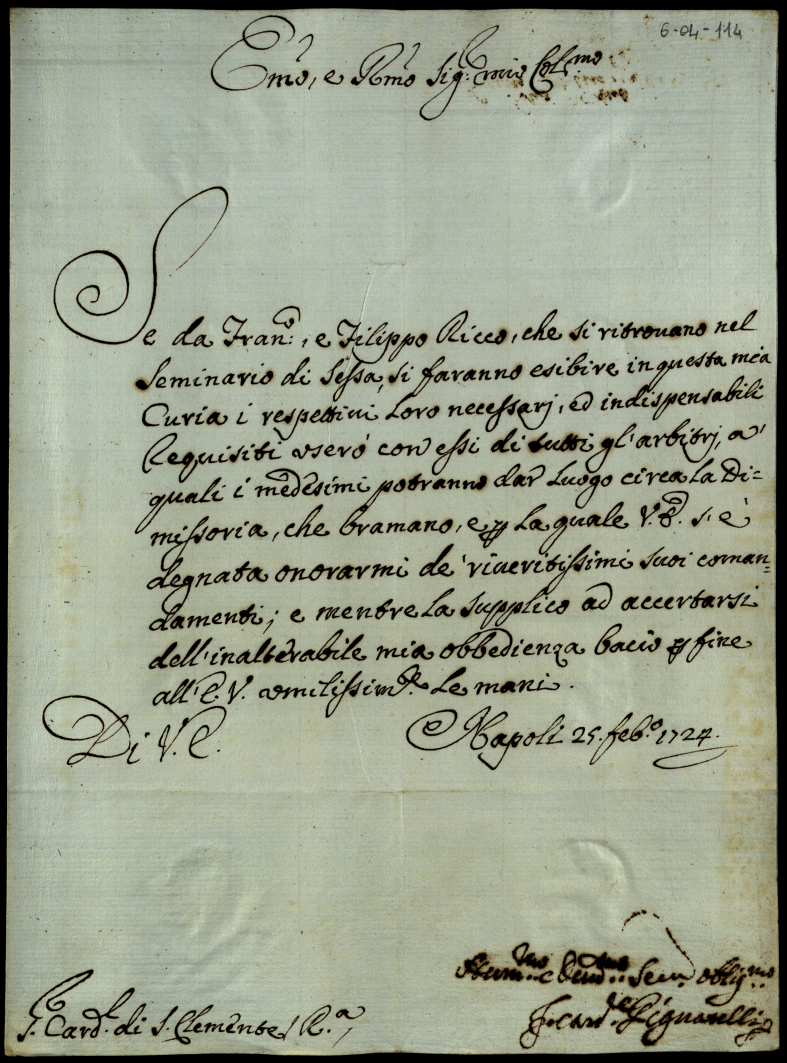 6-04-114
Emo, e Rmo Sig.r mio Col.mo
Se da Fran.co, e Filippo Ricco, che si ritrovano nel
Seminario di Sessa, si faranno esibire in questa mia
Curia i respettivi Loro necessarj, ed indispensabili
Requisiti userò con essi di tutti gl'arbitrj, a'
quali i medesimi potranno dar Luogo circa La Di=
missoria, che bramano, e p La quale V.E. s'è
degnata onorarmi de' riveritissimi suoi coman=
damenti; e mentre La supplico ad accertarsi
dell'inalterabile mia obbedienza bacio p fine
all'E.V. umilissim.te Le mani.
Di V.E. Napoli 25. feb.o 1724.
Hum.mo e Dev.mo Ser. oblig.mo
S. Card.l di S. Clemente / R.a /
F. Card.le Pignatelli